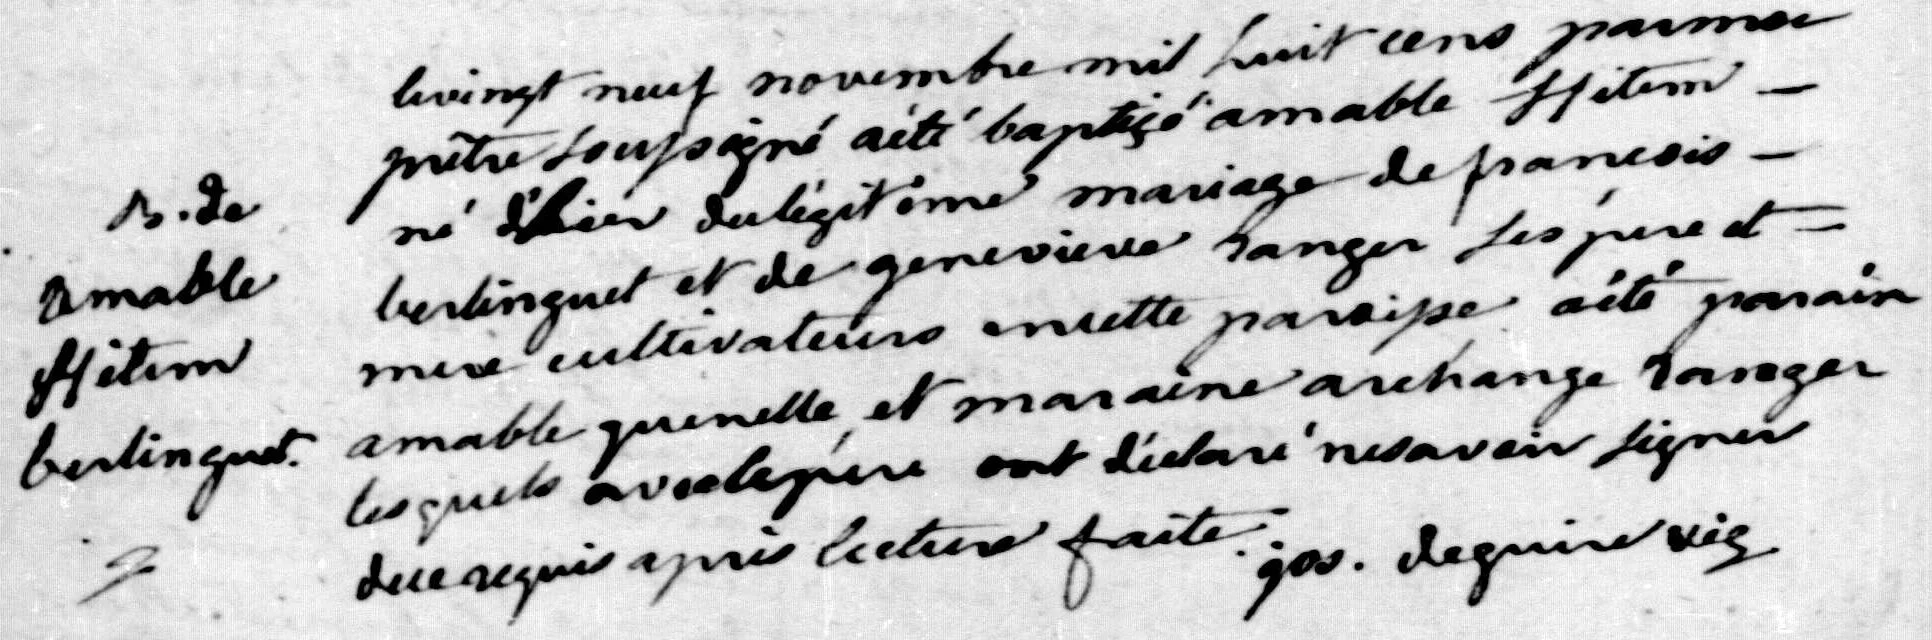 B. de
amable
ffitem
berlinguet.
levingt neuf novembre mil huit cens parmoi
prêtre soussigné aété baptizé amable ffitem -
né d'hier dulégitime mariage de francois -
berlinguet et de genevieve ranger ses pere et =
mere cultivateurs encette paroisse aété parain
amable quenelle et maraine archange ranger
lesquels aveclepere ont déclaré nesavoir signer
dece requis apris lecture faite. jos. deguire vig